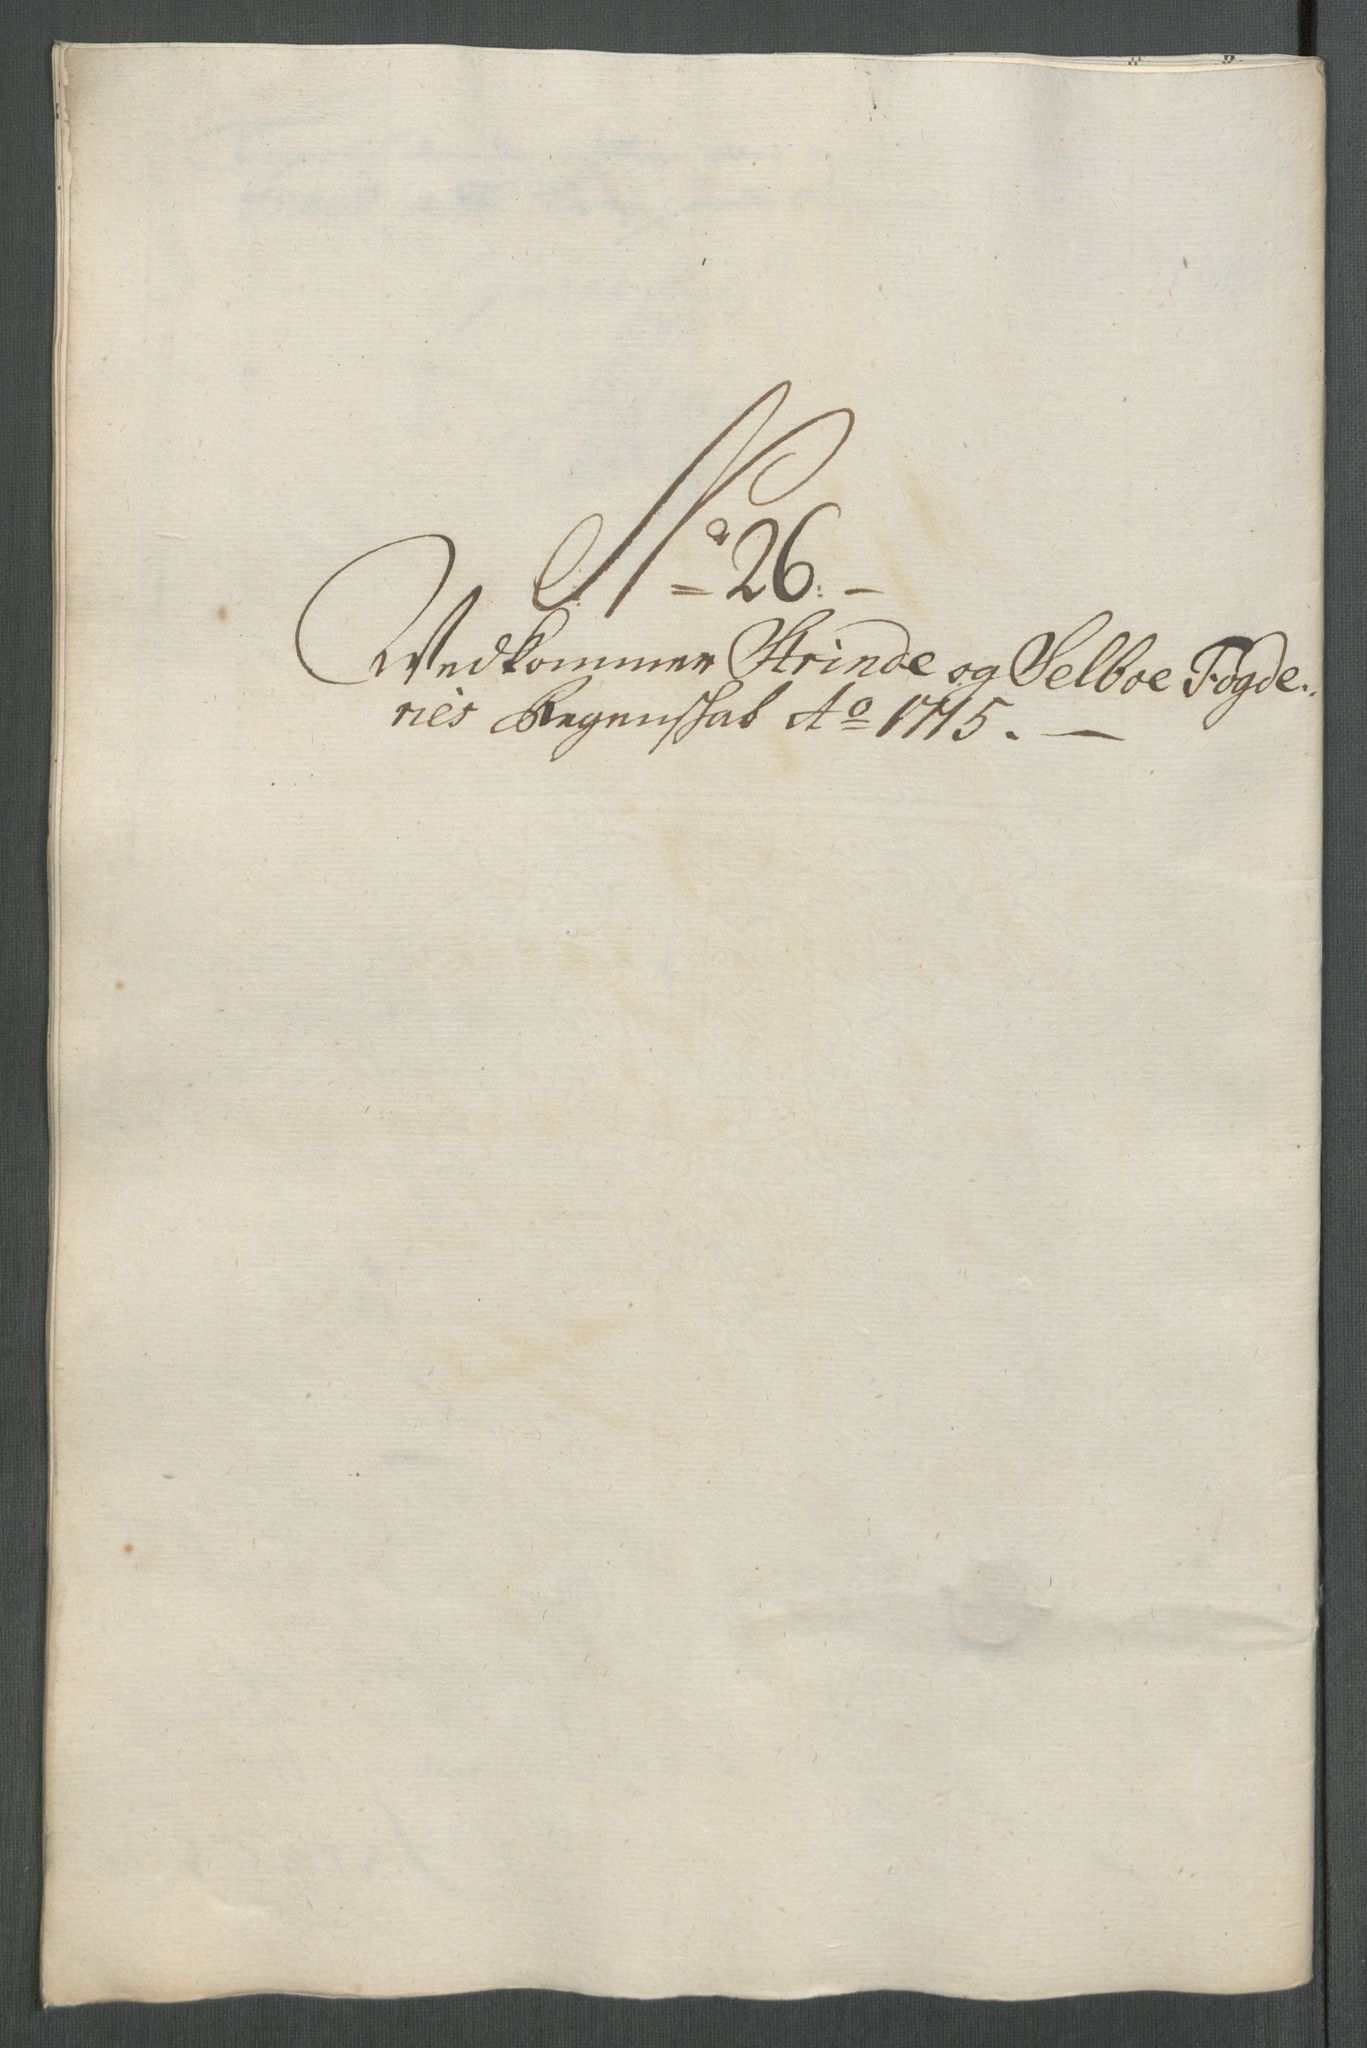 No 26.
Vedkommer Strinde og Selboe Fogde-
ries Regenskab Ao 1715.